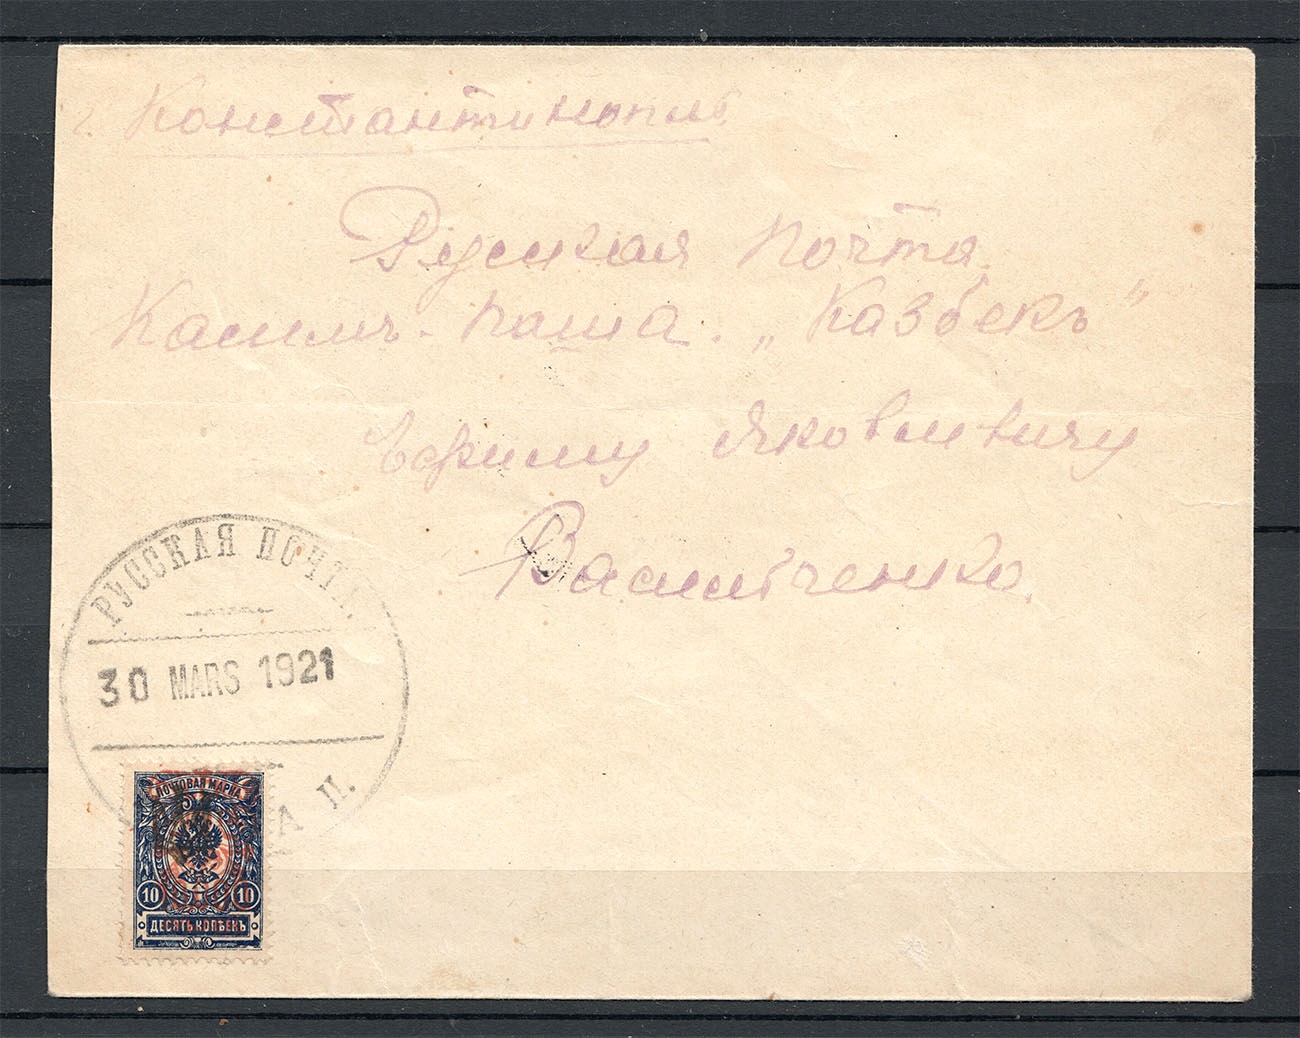 г. Константинополь
Русская Почта.
Касимъ-паша. „Казбекъ"
Ефиму Яковлевичу
Васильченко
РУССКАЯ ПОЧТА.
30 MARS 1921
А П.
ПОЧТОВАЯ МАРКА
10 10
ДЕСЯТЬ КОПѢЕКЪ